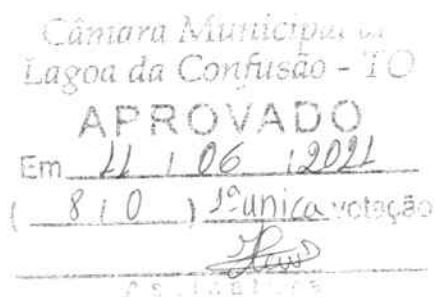 Câmara Municipal
Lagoa da Confusão - TO
APROVADO
Em 11 / 06 / 2021
( 8 / 0 ) 1ª unica votação